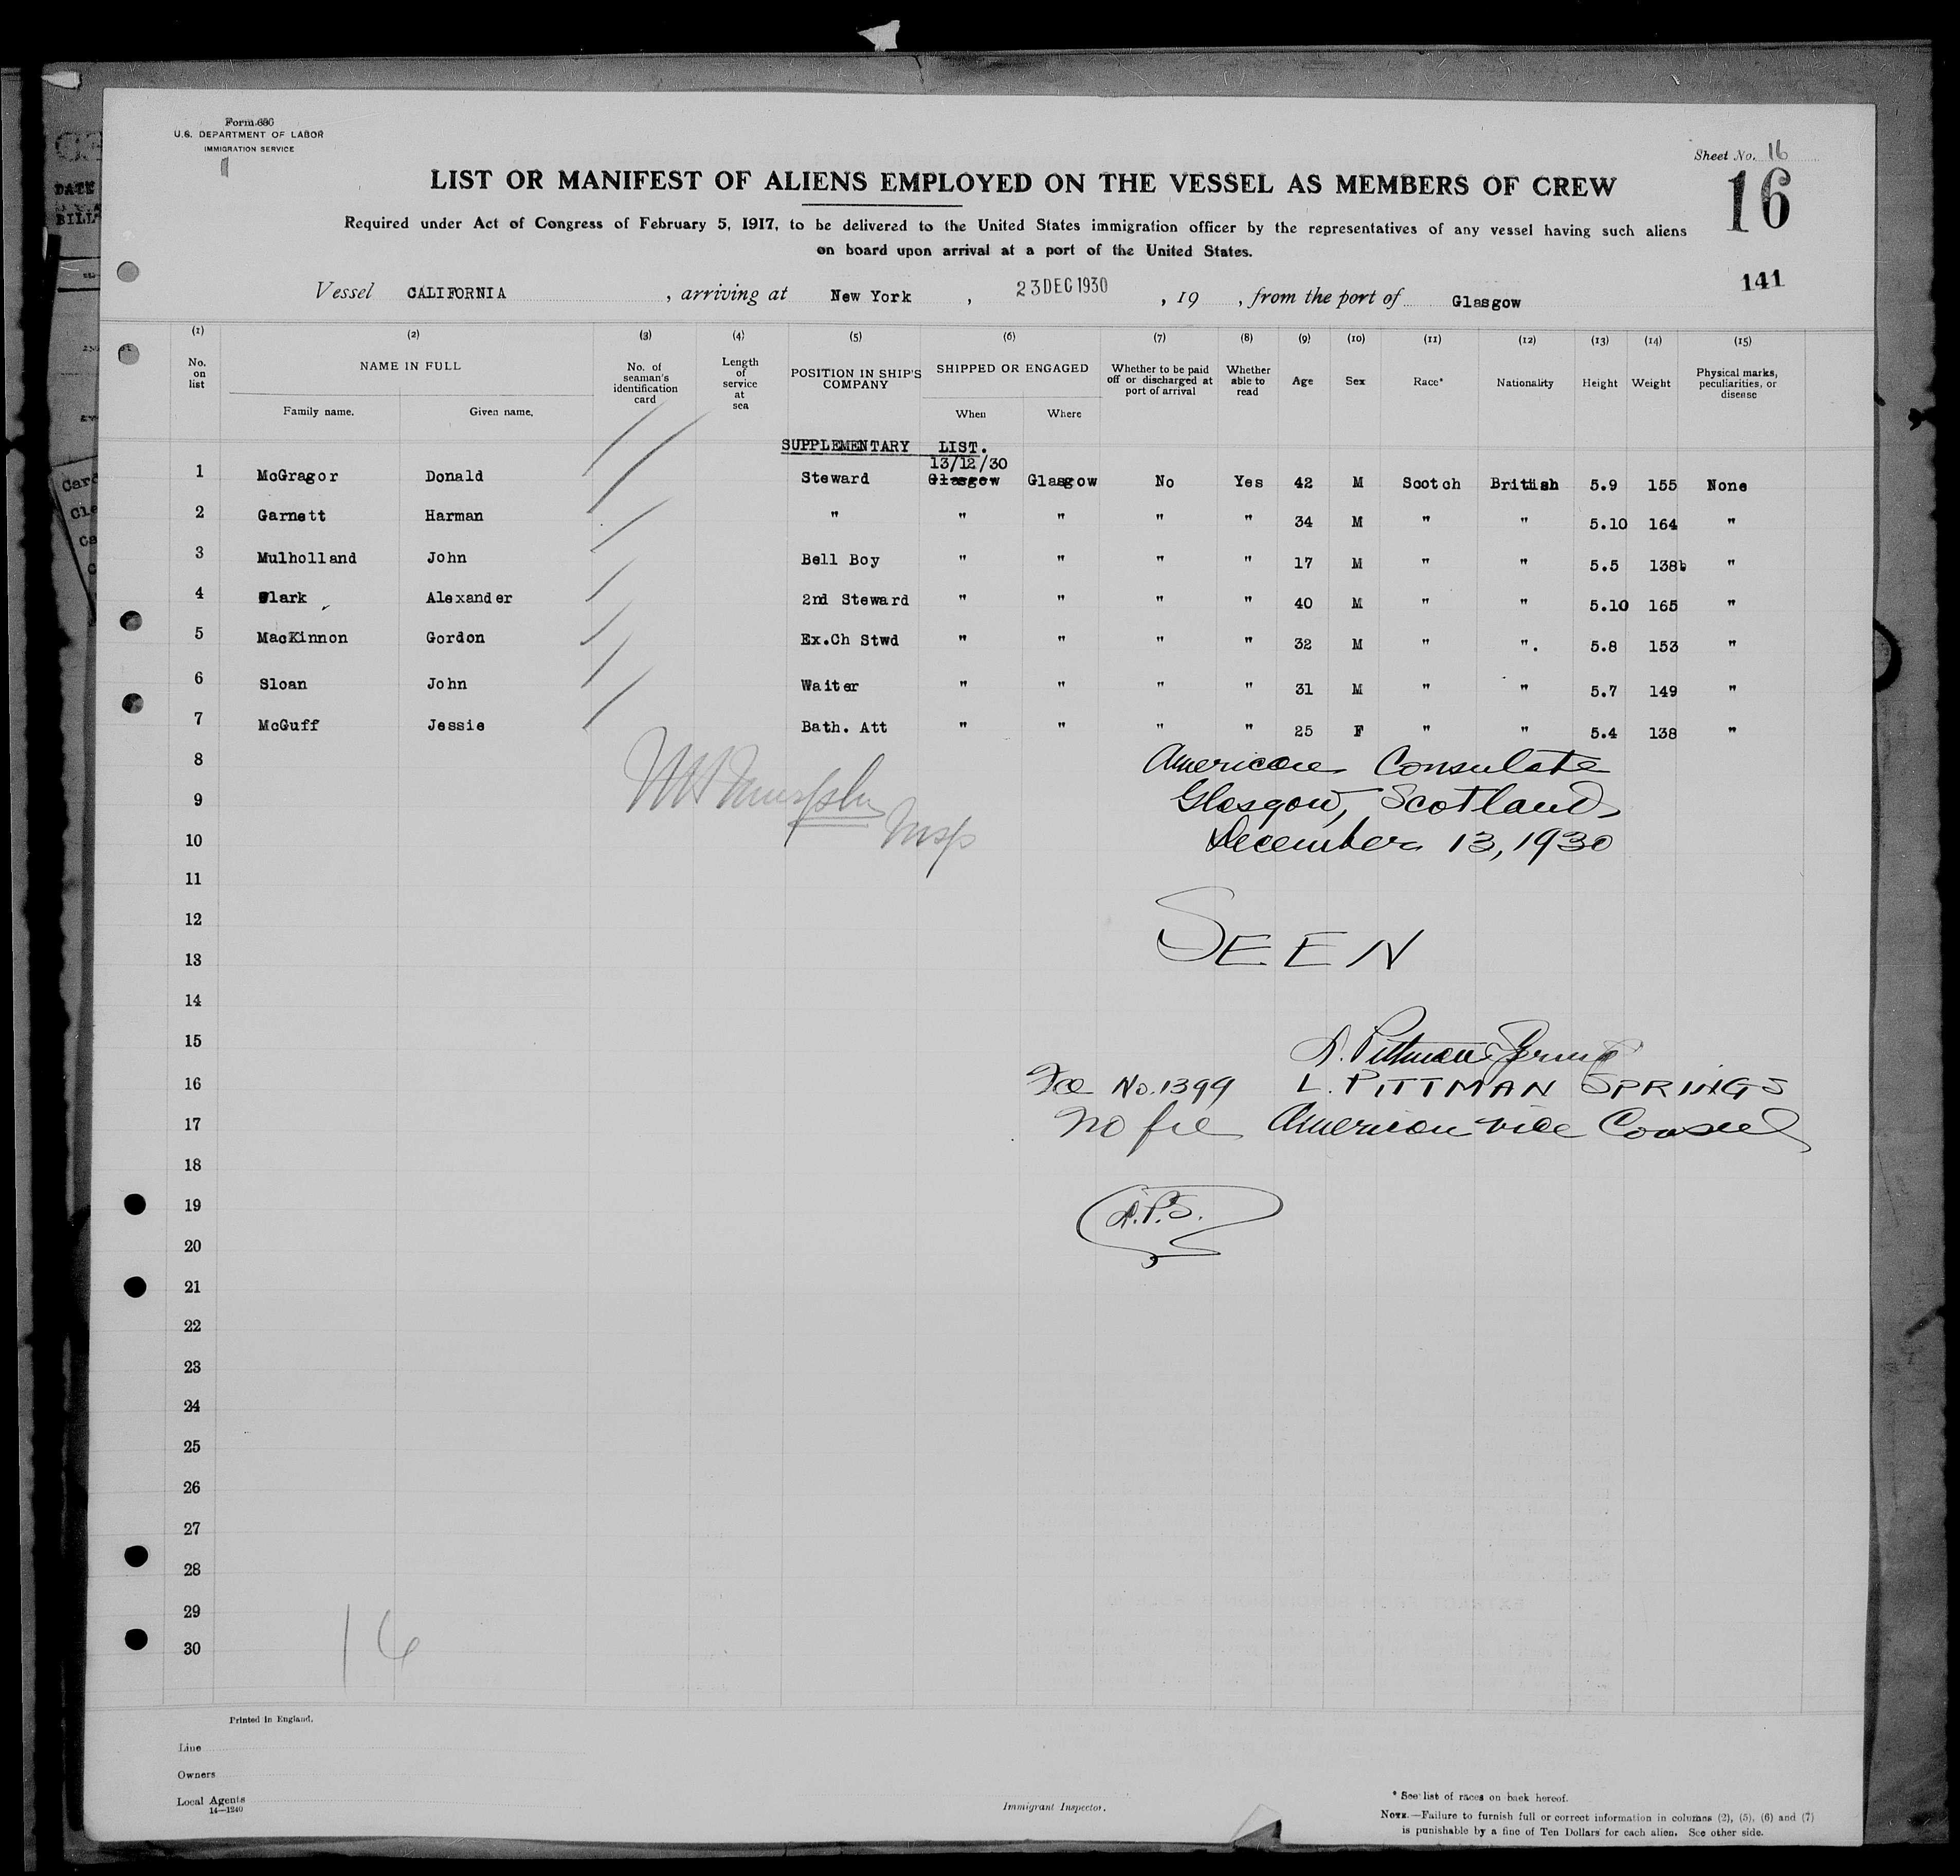 Form 686
U.S. DEPARTMENT OF LABOR
IMMIGRATION SERVICE
Sheet No. 16
16
LIST OR MANIFEST OF ALIENS EMPLOYED ON THE VESSEL AS MEMBERS OF CREW
Required under Act of Congress of February 5, 1917, to be delivered to the United States immigration officer by the representatives of any vessel having such aliens
on board upon arrival at a port of the United States.
141
Vessel CALIFORNIA, arriving at New York, 23 DEC 1930, 19 , from the port of Glasgow
(1) (2) (3) (4) (5) (6) (7) (8) (9) (10) (11) (12) (13) (14) (15)
No. on list
NAME IN FULL
Family name. Given name.
No. of seaman's identification card
Length of service at sea
POSITION IN SHIP'S COMPANY
SHIPPED OR ENGAGED
When Where
Whether to be paid off or discharged at port of arrival
Whether able to read
Age Sex Race* Nationality Height Weight
Physical marks, peculiarities, or disease
SUPPLEMENTARY LIST.
13/12/30
1 McGragor Donald Steward Glasgow Glasgow No Yes 42 M Scotch British 5.9 155 None
2 Garnett Harman " " " " " 34 M " " 5.10 164 "
3 Mulholland John Bell Boy " " " " 17 M " " 5.5 138 "
4 Clark Alexander 2nd Steward " " " " 40 M " " 5.10 165 "
5 MacKinnon Gordon Ex.Ch Stwd " " " " 32 M " ". 5.8 153 "
6 Sloan John Waiter " " " " 31 M " " 5.7 149 "
7 McGuff Jessie Bath. Att " " " " 25 F " " 5.4 138 "
8 American Consulate
9 Glasgow, Scotland,
10 December 13, 1930
11
12
13 SEEN
14
15 L. Pittman Springs
16 Fee No. 1399 L. PITTMAN SPRINGS
17 No fee American Vice Consul
18
19 L.P.S.
20
21
22
23
24
25
26
27
28
29
30
16
Printed in England.
Line
Owners
Local Agents
14—1240
Immigrant Inspector.
* See list of races on back hereof.
NOTE.—Failure to furnish full or correct information in columns (2), (5), (6) and (7)
is punishable by a fine of Ten Dollars for each alien. See other side.